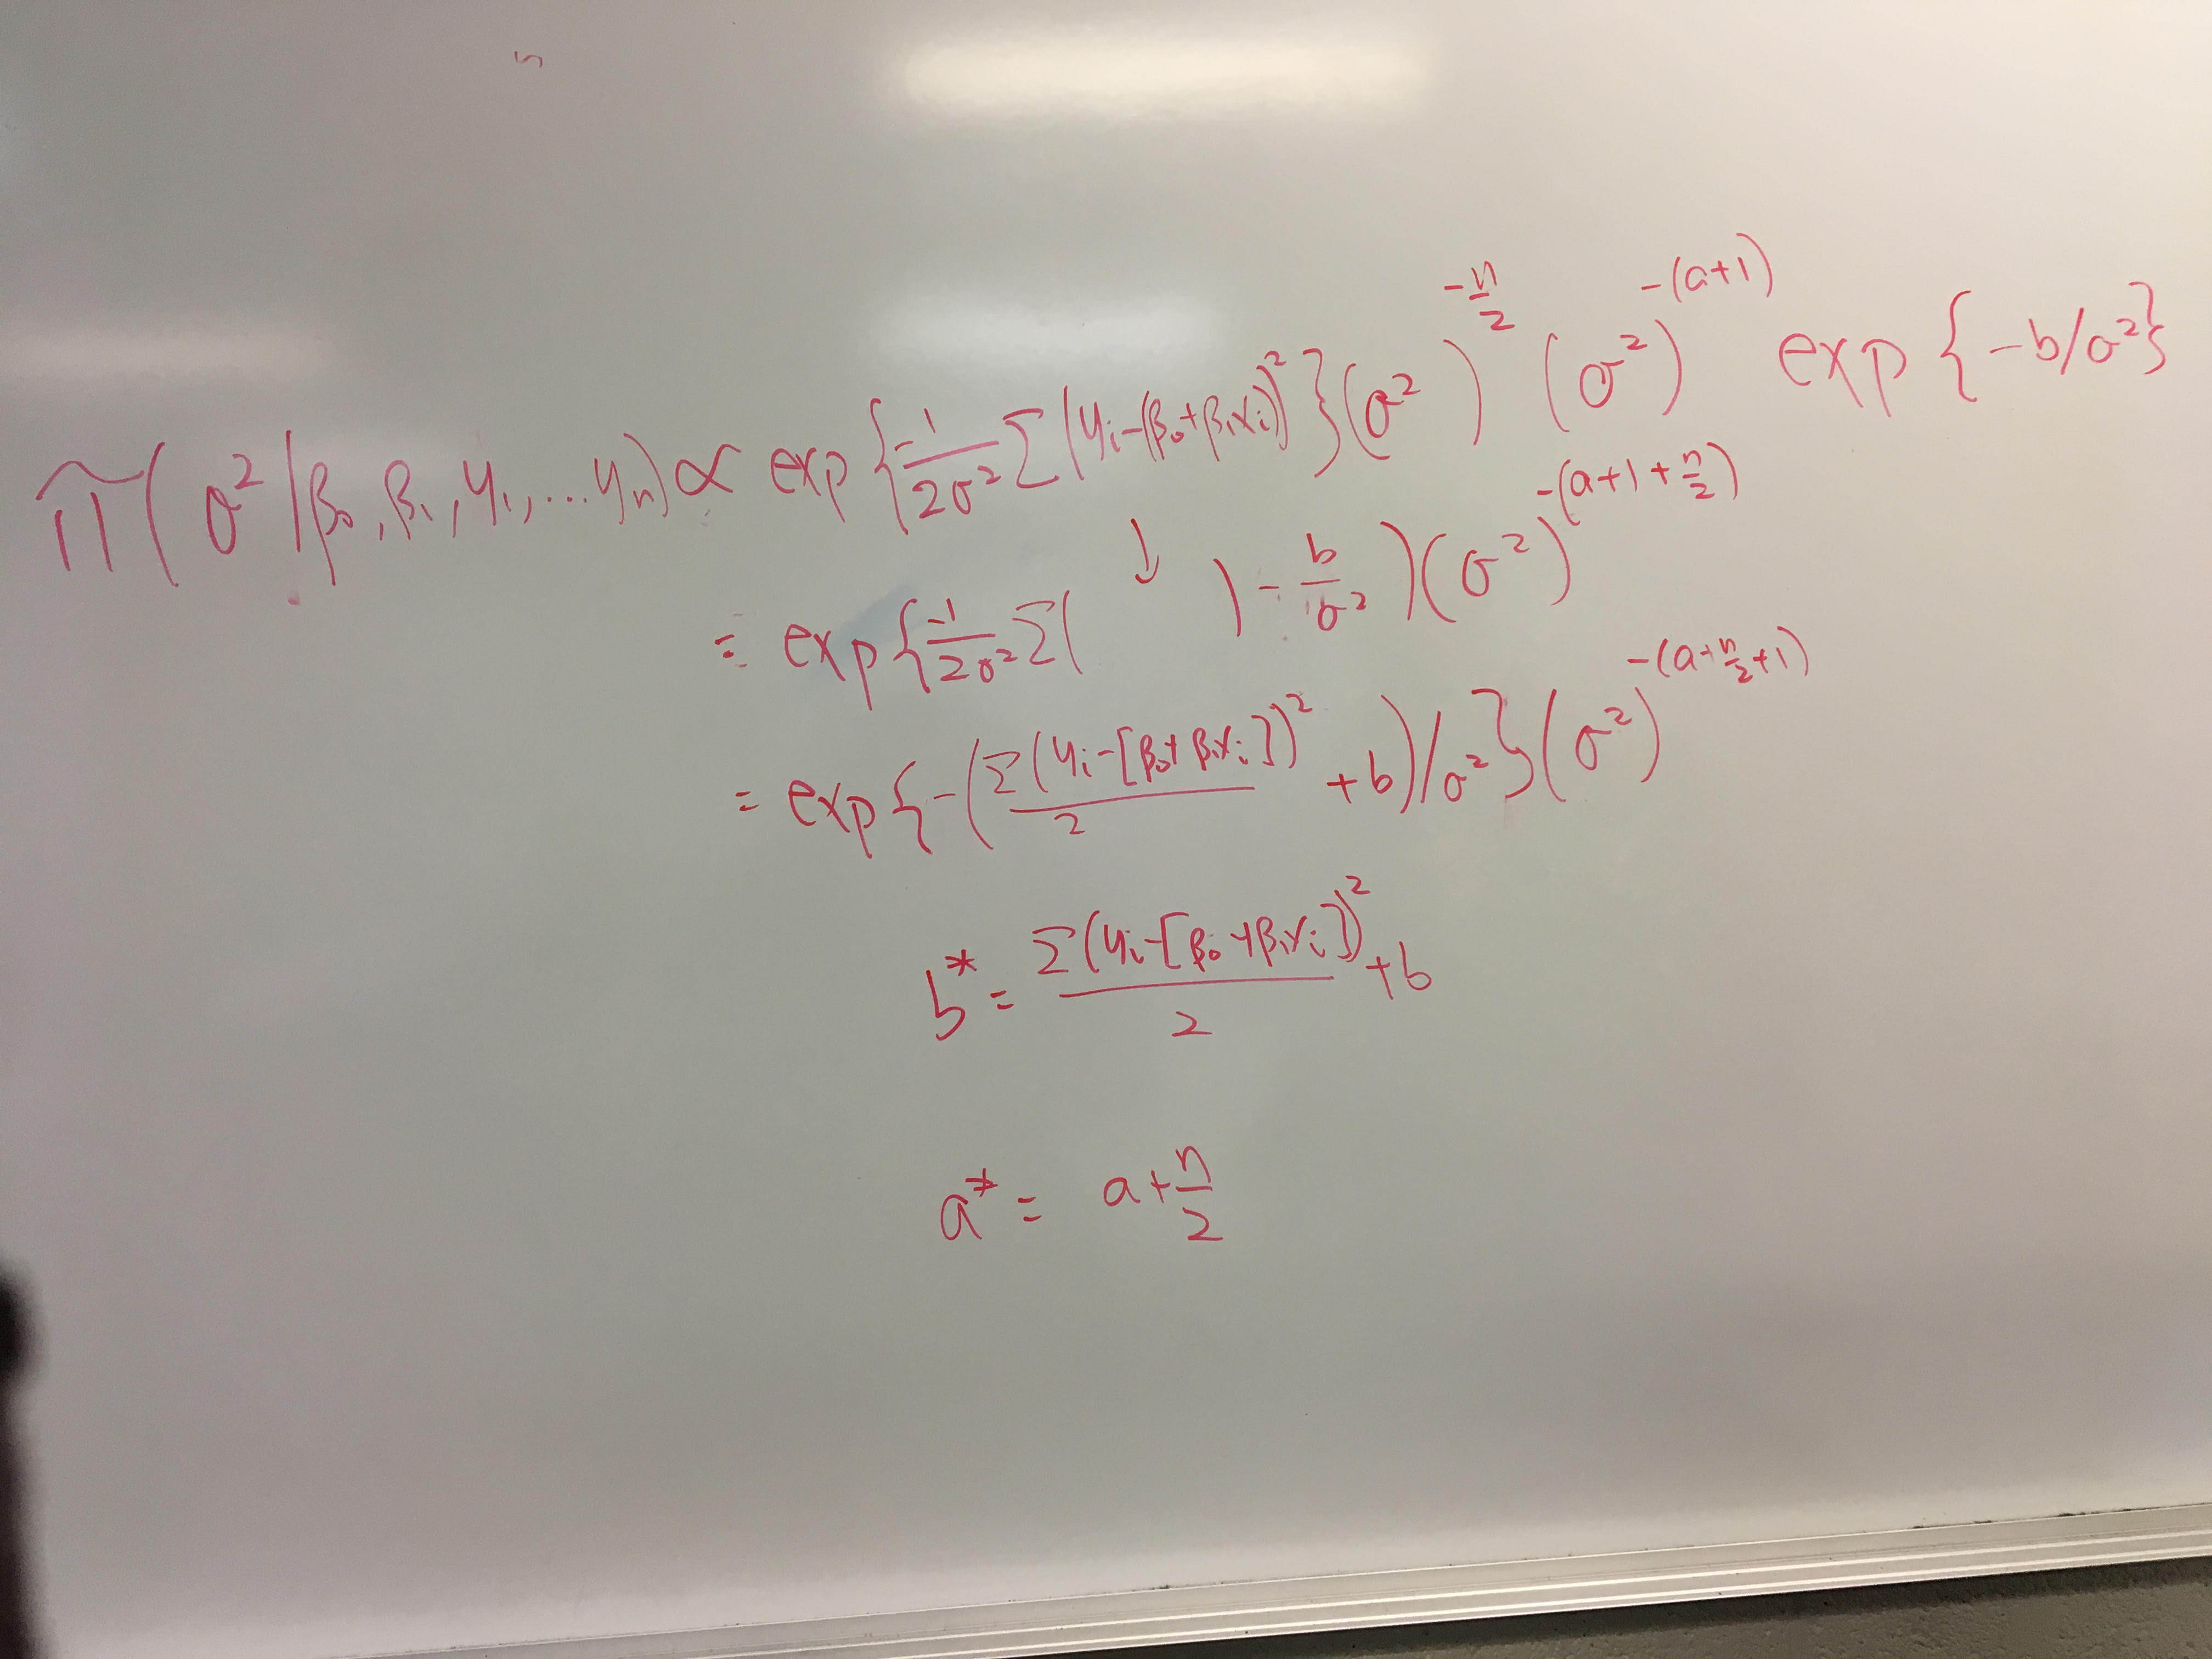 π(σ²|β₀,β₁,y₁,...yₙ) ∝ exp{-1/2σ² Σ(yᵢ-(β₀+β₁xᵢ))²}(σ²)^(-n/2) (σ²)^(-(a+1)) exp{-b/σ²}
= exp{-1/2σ² Σ( ↓ ) - b/σ²)(σ²)^(-(a+1+n/2))
= exp{-(Σ(yᵢ-[β₀+β₁xᵢ])²/2 +b)/σ²}(σ²)^(-(a+n/2+1))
b* = Σ(yᵢ-[β₀+β₁xᵢ])²/2 +b
a* = a+n/2